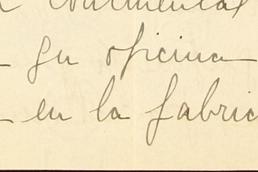 gu oficina
en la fabric